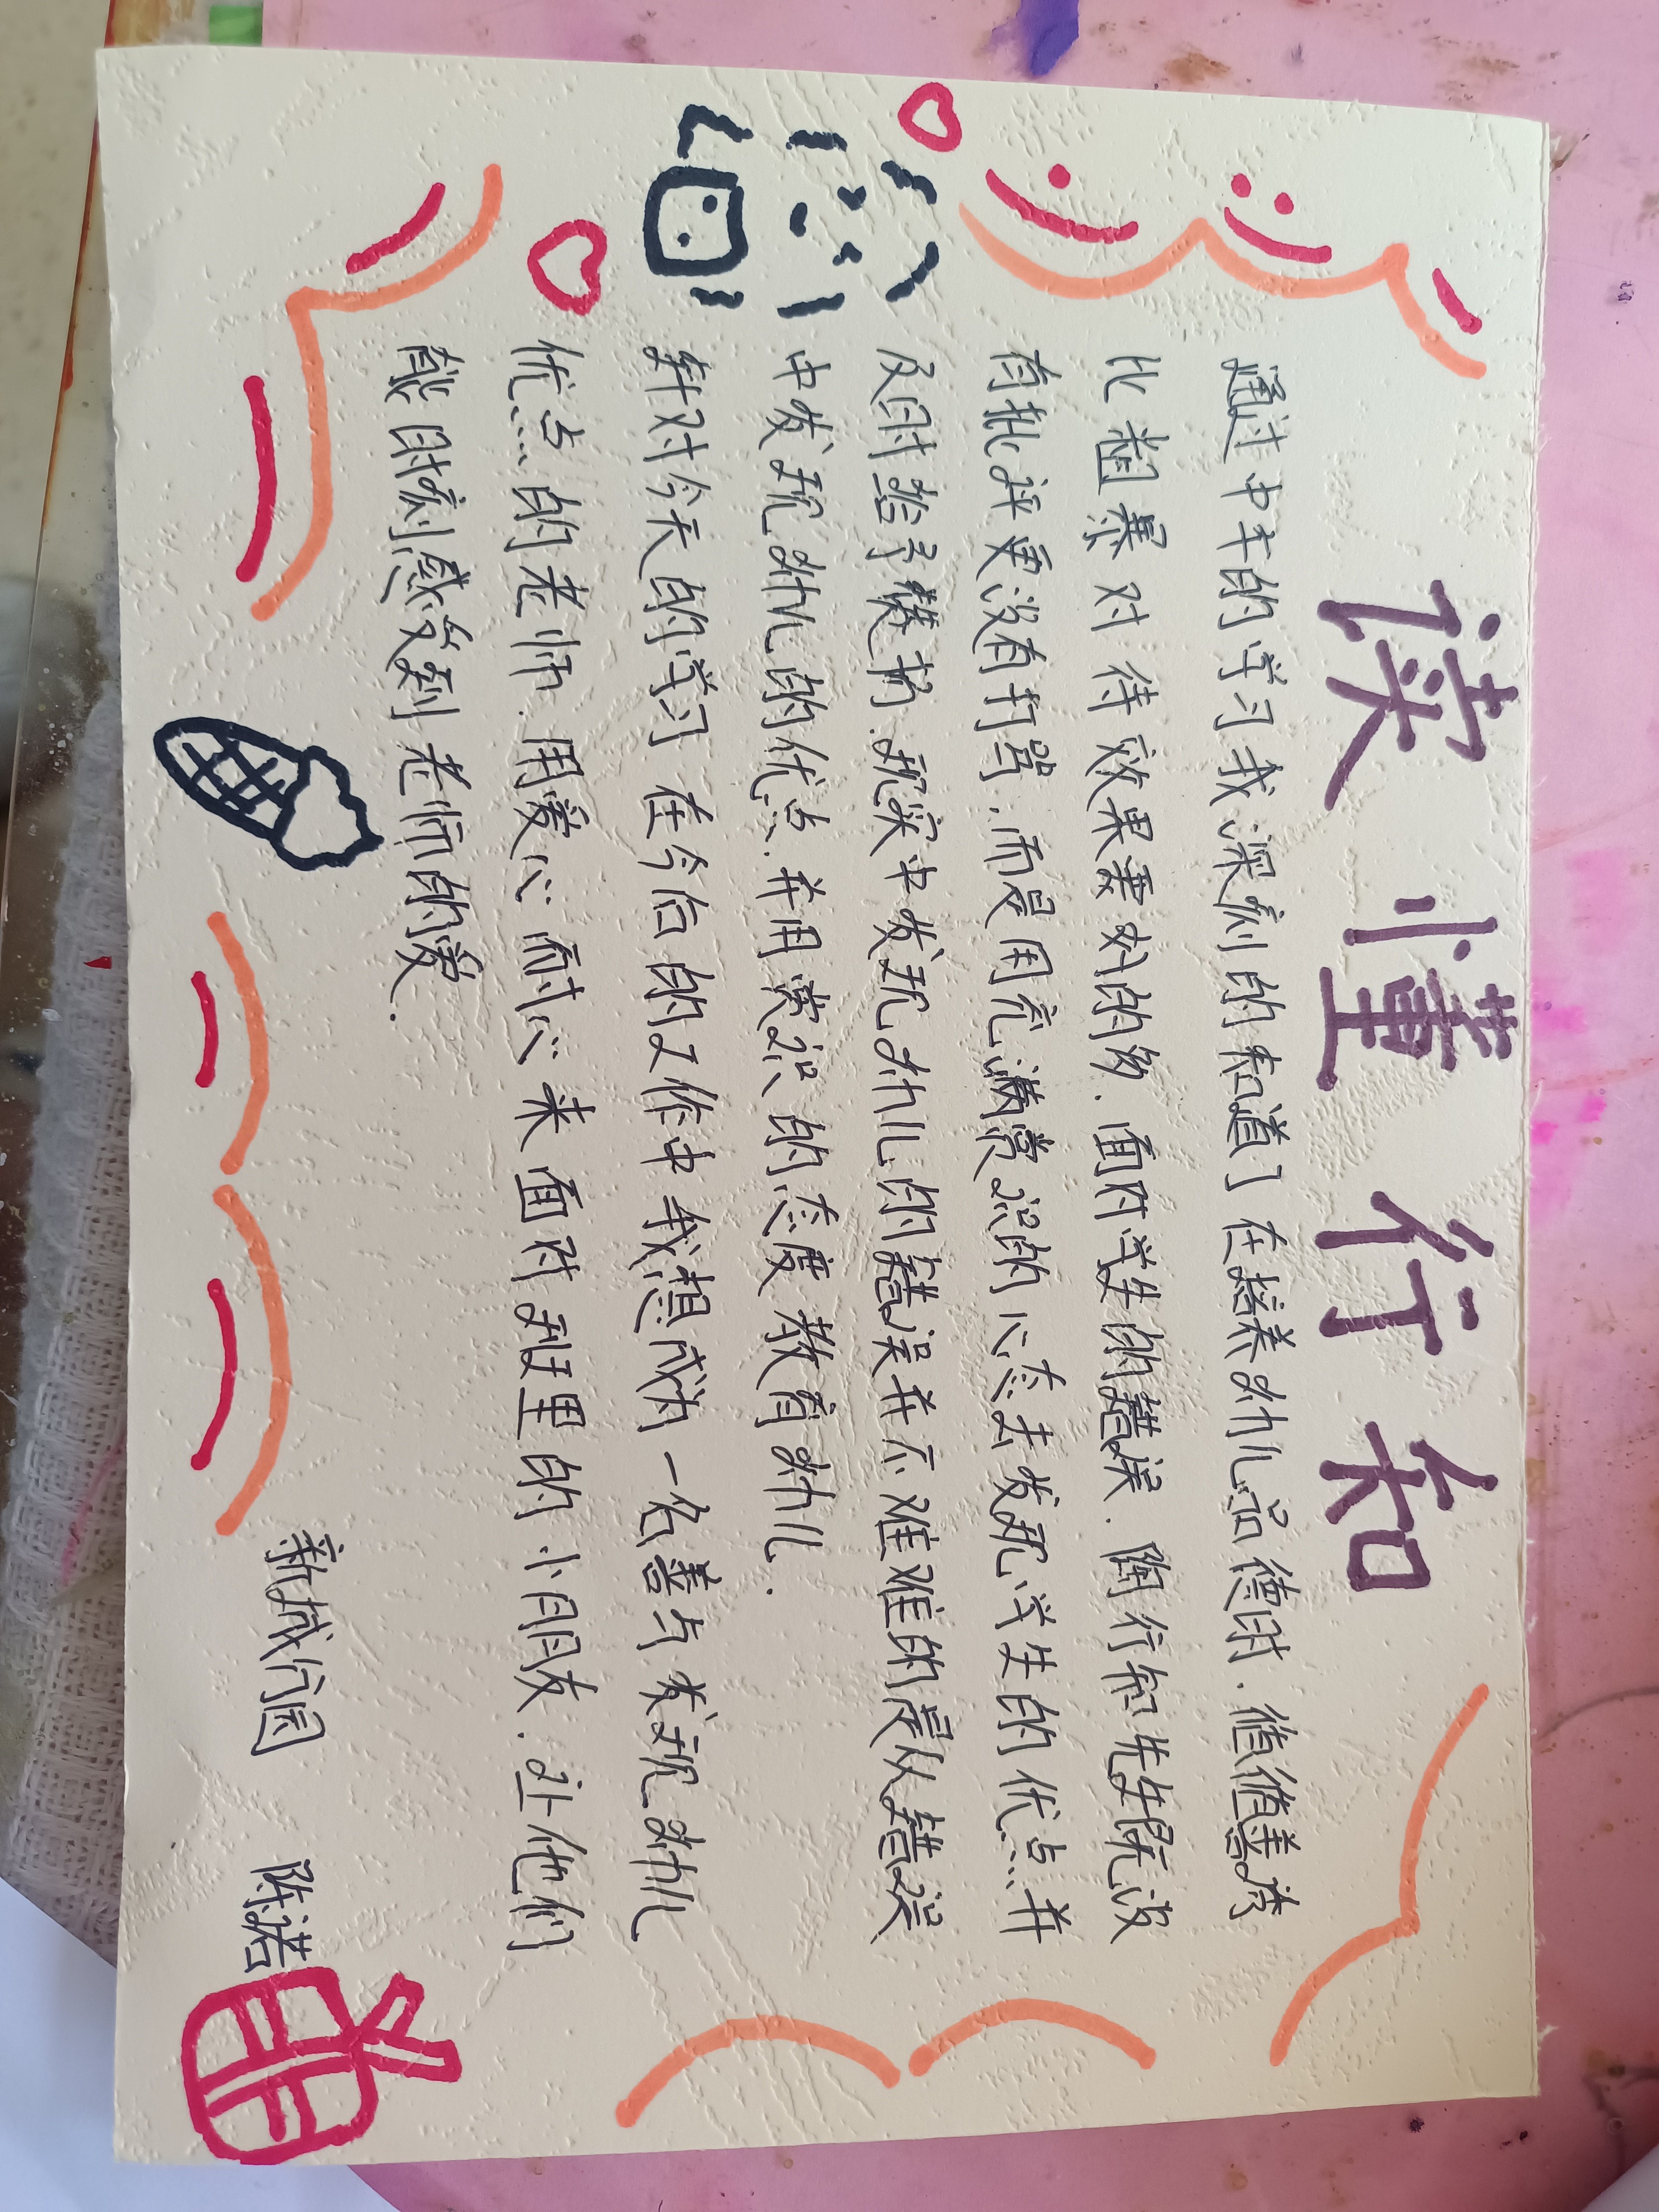 读懂行知
通过中午的学习我深刻的知道了在培养幼儿品德时.循循善诱
比粗暴对待效果要好的多.面对学生的错误.陶行知先生既没
有批评更没有打骂.而是用充满赏识的心态去发现学生的优点并
及时给予赞扬.现实中发现幼儿的错误并不难难的是从错误
中发现幼儿的优点.并用赏识的态度教育幼儿.
针对今天的学习在今后的工作中我想成为一名善于发现幼儿
优点的老师.用爱心耐心来面对班里的小朋友.让他们
能时刻感受到老师的爱.
新城分园 陈诺